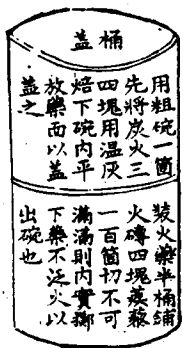 桶盖
用粗碗一箇
先將炭火三
四塊用温灰
焙下碗内平
放藥面以盖
盖之
裝火藥半桶舖
火磚四塊蒺藜
一百箇切不可
滿滿則内實擲
下藥不泛火以
出碗也